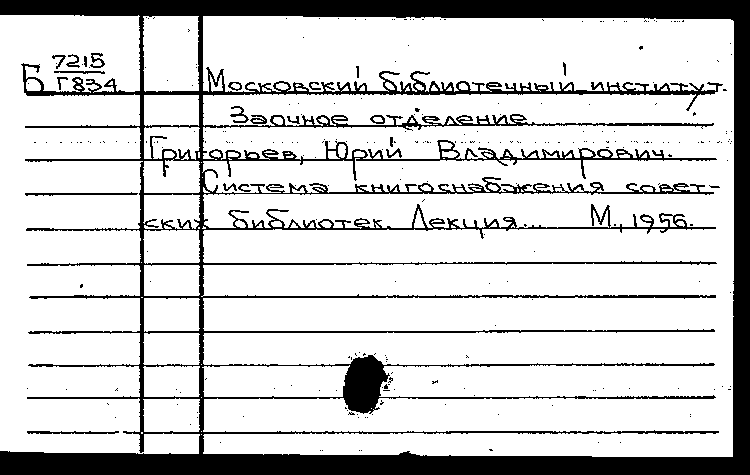 Б 7215
Г834
Московский библиотечный институт.
Заочное отделение.
Григорьев, Юрий Владимирович.
Система книгоснабжения совет-
ских библиотек. Лекция... М., 1956.